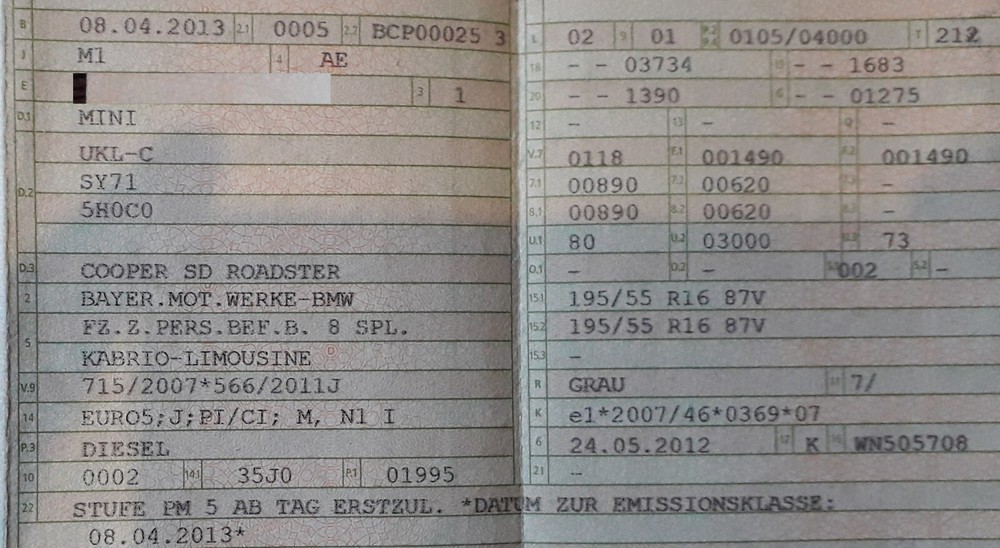 B 08.04.2013 2.1 0005 2.2 BCP00025 3
J M1 4 AE
E 3 1
D.1 MINI
UKL-C
D.2 SY71
5H0C0
D.3 COOPER SD ROADSTER
2 BAYER.MOT.WERKE-BMW
5 FZ.Z.PERS.BEF.B. 8 SPL.
KABRIO-LIMOUSINE
V.9 715/2007*566/2011J
14 EURO5;J;PI/CI; M, N1 I
P.3 DIESEL
10 0002 14.1 35J0 P.1 01995
L 02 9 01 P.2 P.4 0105/04000 T 212
18 - - 03734 19 - - 1683
20 - - 1390 G - - 01275
12 - 13 - Q -
V.7 0118 F.1 001490 F.2 001490
7.1 00890 7.2 00620 7.3 -
8.1 00890 8.2 00620 8.3 -
U.1 80 U.2 03000 U.3 73
O.1 - O.2 - S.1 002 S.2 -
15.1 195/55 R16 87V
15.2 195/55 R16 87V
15.3 -
R GRAU 11 7/
K e1*2007/46*0369*07
6 24.05.2012 17 K 16 WN505708
21 -
22 STUFE PM 5 AB TAG ERSTZUL. *DATUM ZUR EMISSIONSKLASSE:
08.04.2013*